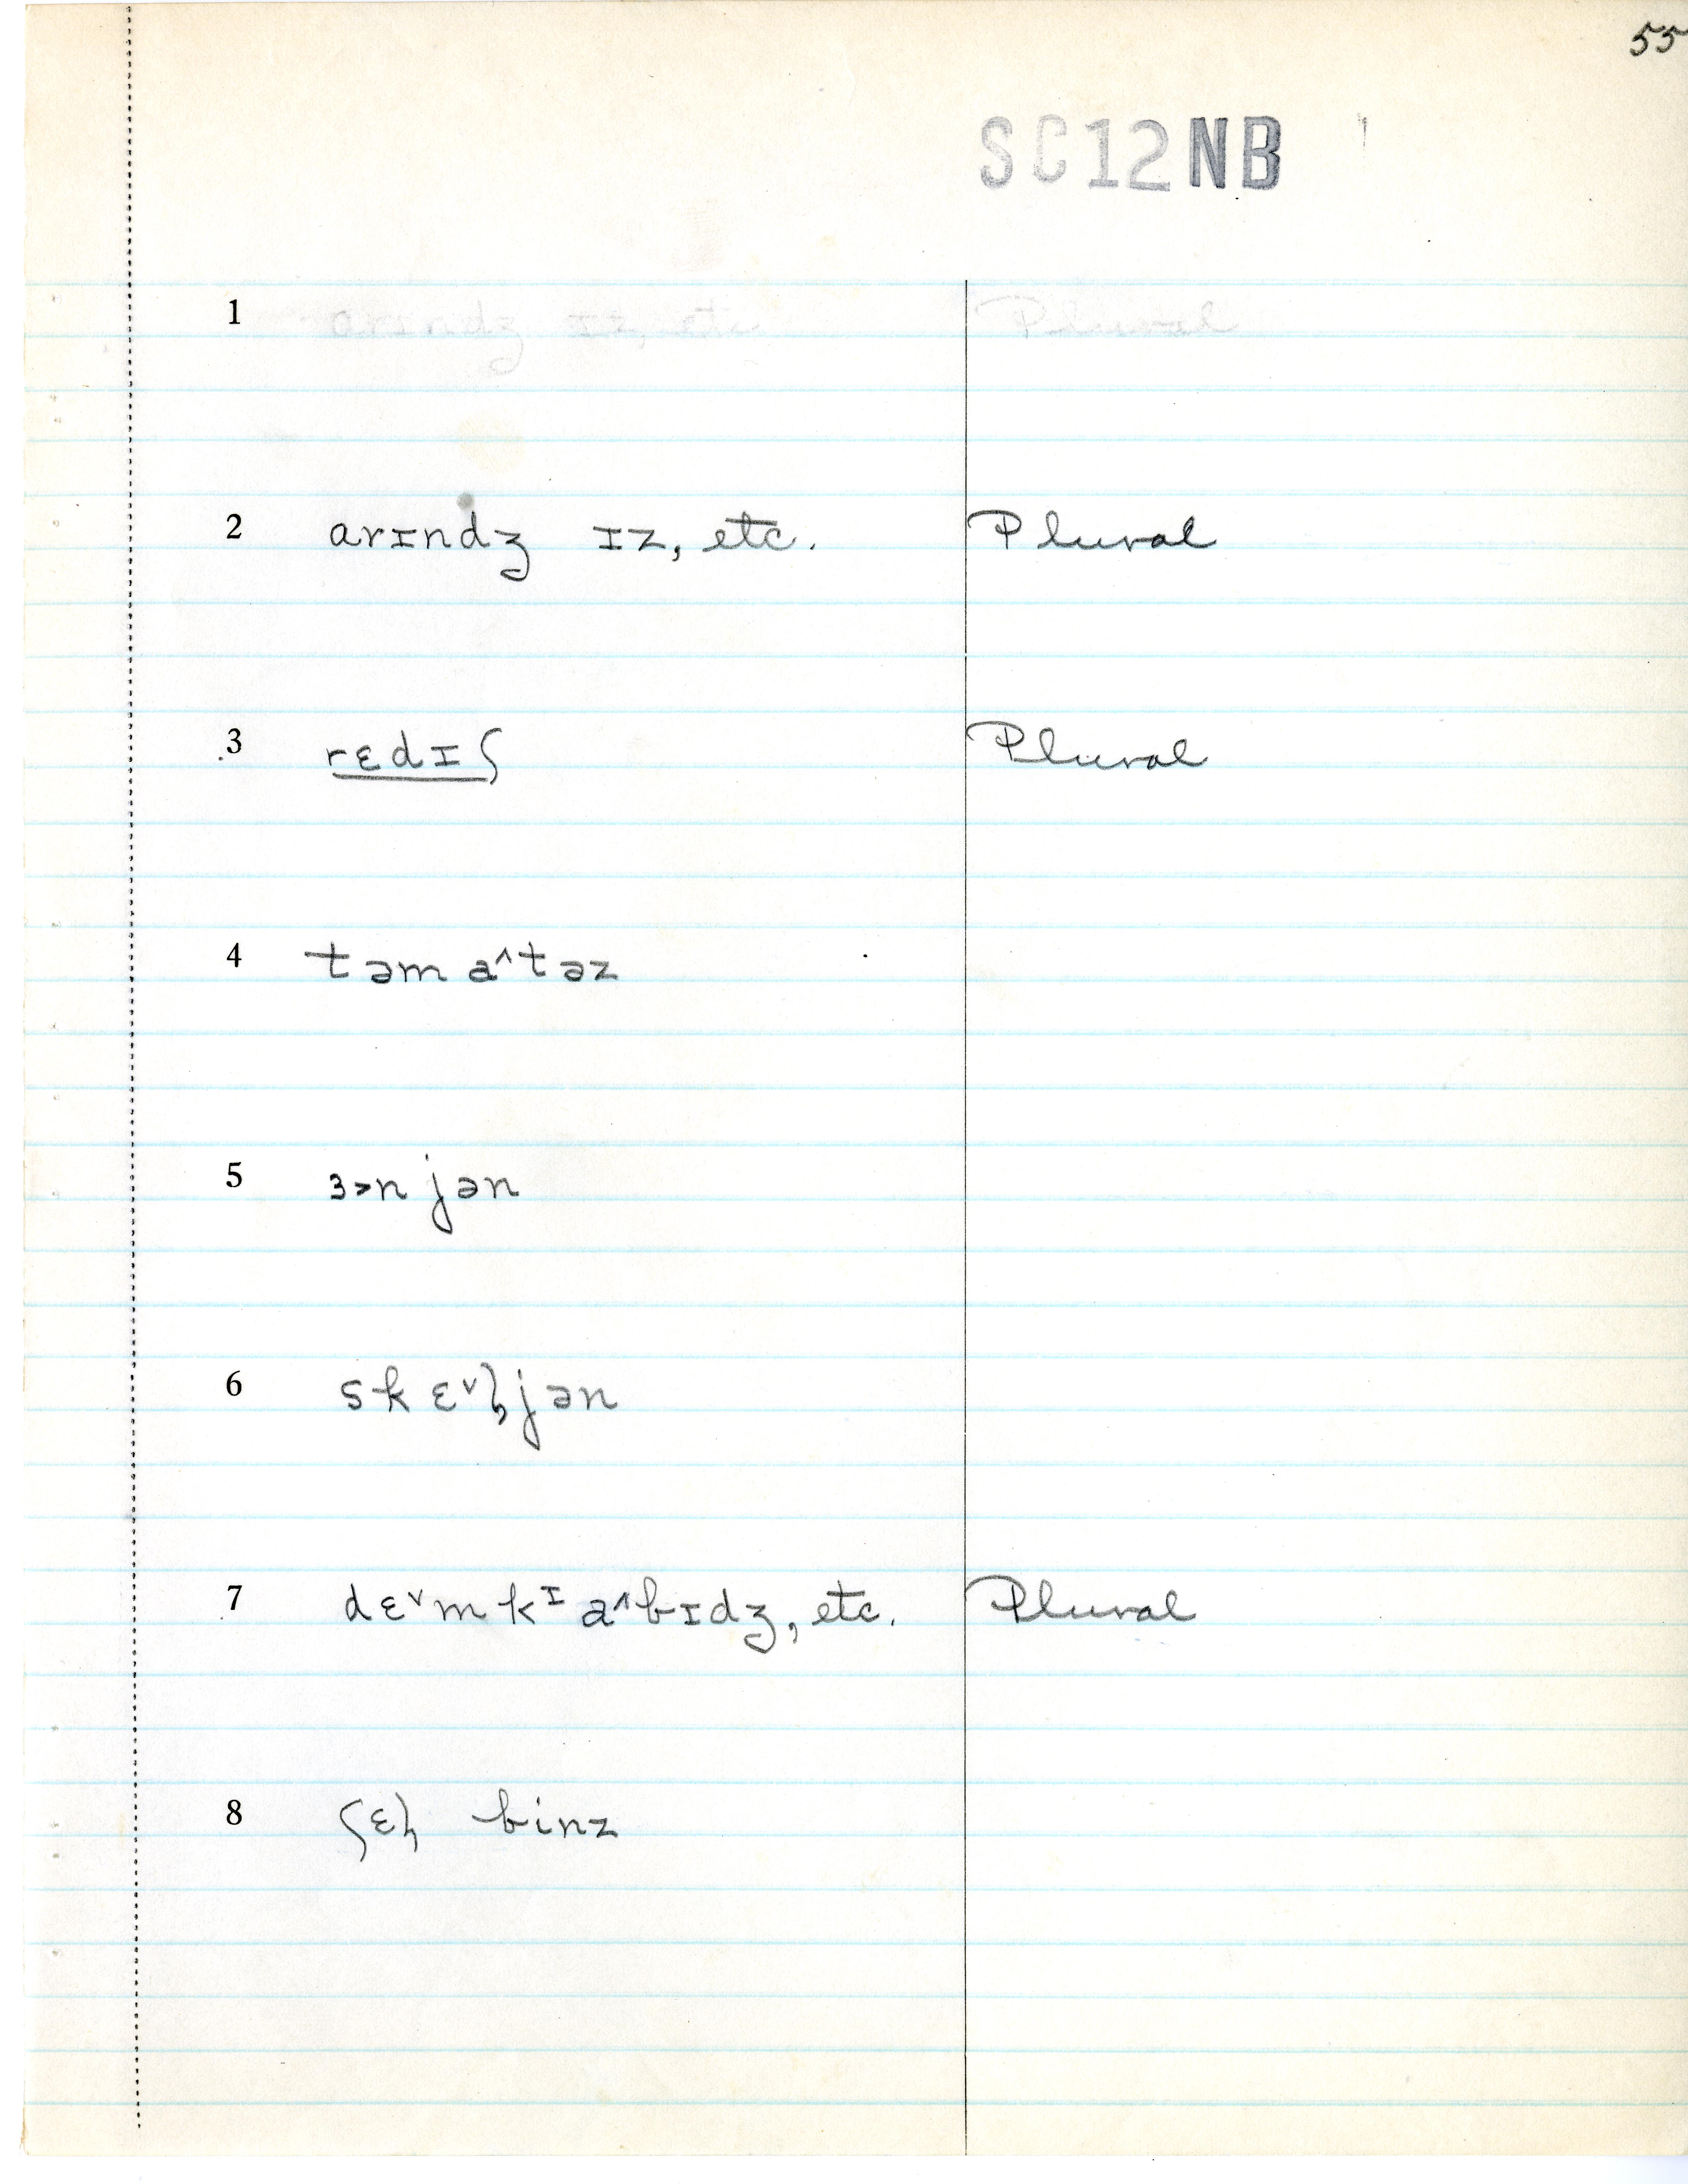 55
SC12NB
1 arɪndʒ ɪz, etc Plural
2 arɪndʒ ɪz, etc. Plural
3 rɛdɪʃ Plural
4 təma^təz
5 ɜ>njən
6 skɛˇljən
7 dɛˇm kᶦ a^bɪdʒ, etc. Plural
8 ʃɛl binz